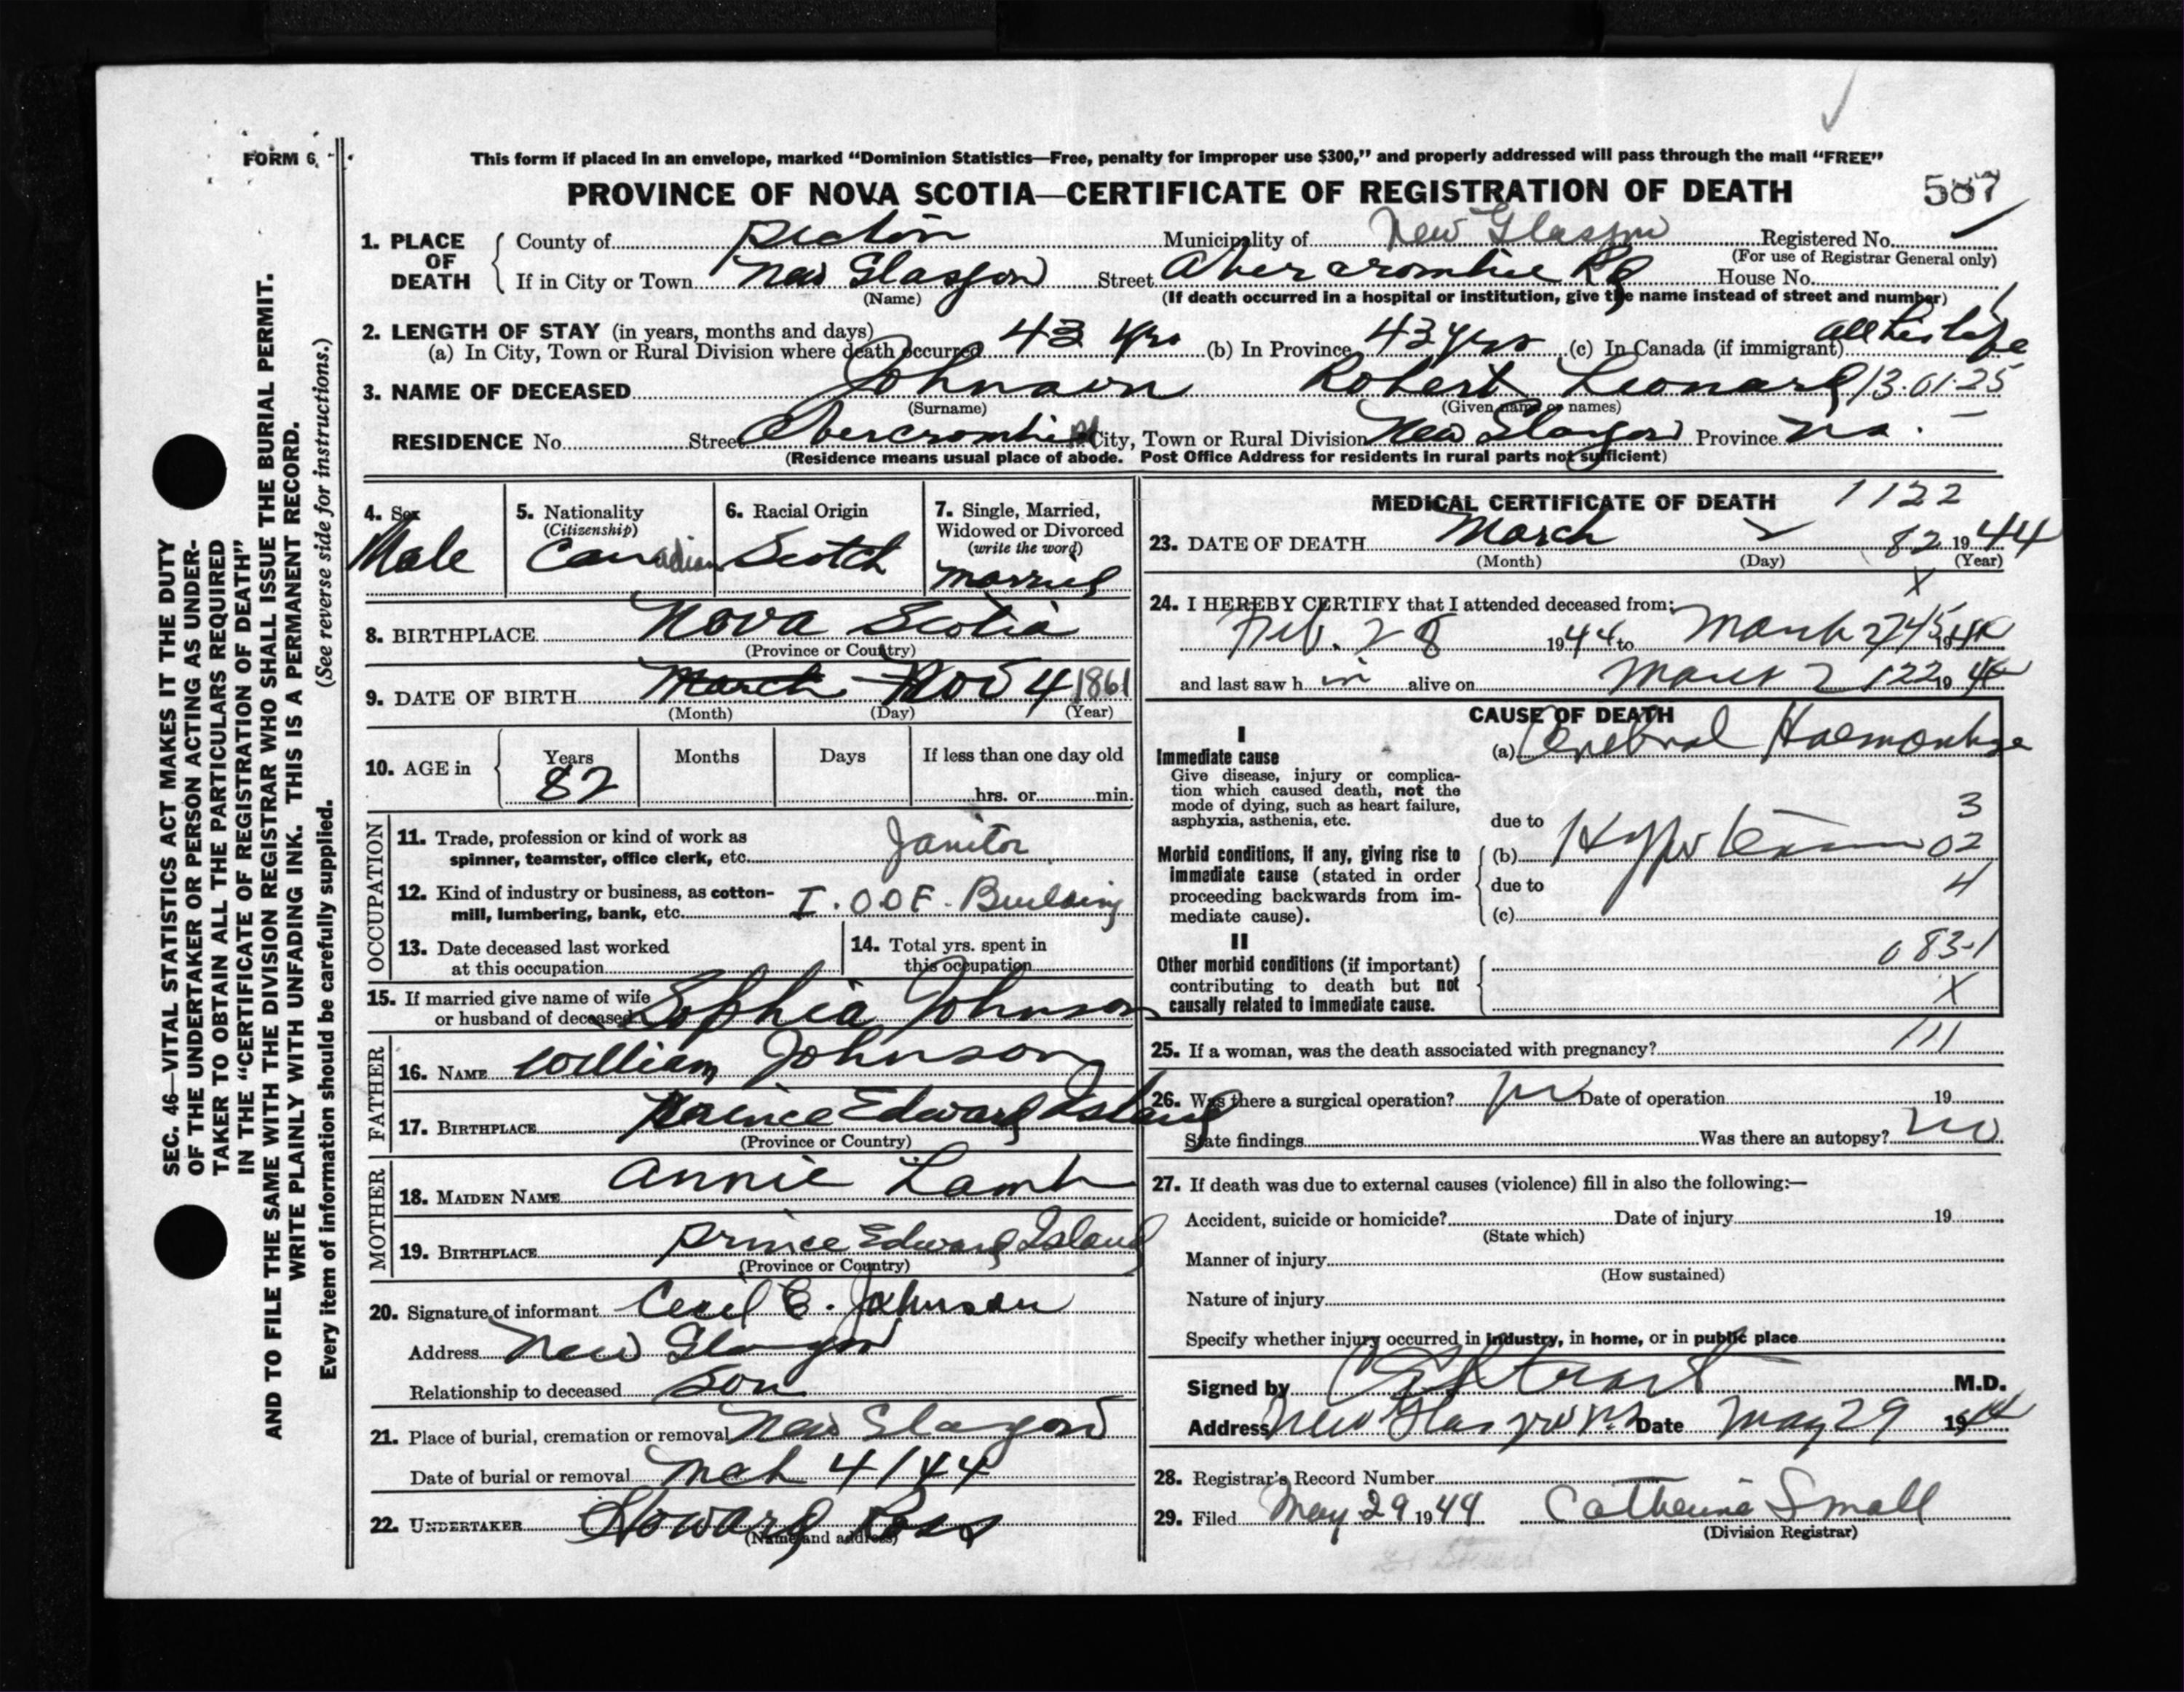 FORM 6.
This form if placed in an envelope, marked “Dominion Statistics—Free, penalty for improper use $300,” and properly addressed will pass through the mail “FREE”
PROVINCE OF NOVA SCOTIA—CERTIFICATE OF REGISTRATION OF DEATH 587
SEC. 46—VITAL STATISTICS ACT MAKES IT THE DUTY
OF THE UNDERTAKER OR PERSON ACTING AS UNDER-
TAKER TO OBTAIN ALL THE PARTICULARS REQUIRED
IN THE “CERTIFICATE OF REGISTRATION OF DEATH”
AND TO FILE THE SAME WITH THE DIVISION REGISTRAR WHO SHALL ISSUE THE BURIAL PERMIT.
WRITE PLAINLY WITH UNFADING INK. THIS IS A PERMANENT RECORD.
Every item of information should be carefully supplied. (See reverse side for instructions.)
1. PLACE OF DEATH County of Pictou Municipality of New Glasgow Registered No.
(For use of Registrar General only)
If in City or Town New Glasgow Street Abercrombie Rd House No.
(Name) (If death occurred in a hospital or institution, give the name instead of street and number)
2. LENGTH OF STAY (in years, months and days)
(a) In City, Town or Rural Division where death occurred 43 yrs (b) In Province 43 yrs (c) In Canada (if immigrant) all his life
3. NAME OF DECEASED Johnson Robert Leonard 13·01·25
(Surname) (Given name or names)
RESIDENCE No. Street Abercrombie Rd City, Town or Rural Division New Glasgow Province N.S.
(Residence means usual place of abode. Post Office Address for residents in rural parts not sufficient)
4. Sex
Male
5. Nationality
(Citizenship)
Canadian
6. Racial Origin
Scotch
7. Single, Married,
Widowed or Divorced
(write the word)
Married
8. BIRTHPLACE Nova Scotia
(Province or Country)
9. DATE OF BIRTH March Nov 4 1861
(Month) (Day) (Year)
10. AGE in Years Months Days If less than one day old
82 hrs. or min.
OCCUPATION
11. Trade, profession or kind of work as
spinner, teamster, office clerk, etc. Janitor
12. Kind of industry or business, as cotton-
mill, lumbering, bank, etc. I.O.O.F. Building
13. Date deceased last worked
at this occupation
14. Total yrs. spent in
this occupation
15. If married give name of wife
or husband of deceased Sophia Johnson
FATHER
16. NAME William Johnson
17. BIRTHPLACE Prince Edward Island
(Province or Country)
MOTHER
18. MAIDEN NAME Annie Lamb
19. BIRTHPLACE Prince Edward Island
(Province or Country)
20. Signature of informant Cecil E. Johnson
Address New Glasgow
Relationship to deceased Son
21. Place of burial, cremation or removal New Glasgow
Date of burial or removal Mch 4/44
22. UNDERTAKER Howard Ross
(Name and address)
MEDICAL CERTIFICATE OF DEATH 1122
23. DATE OF DEATH March 2 82 1944
(Month) (Day) (Year)
X
24. I HEREBY CERTIFY that I attended deceased from:
Feb. 28 1944 to March 2 745 1944
and last saw h im alive on March 2 122 1944
CAUSE OF DEATH
I
Immediate cause (a) Cerebral Haemorrhage
Give disease, injury or complica-
tion which caused death, not the
mode of dying, such as heart failure,
asphyxia, asthenia, etc.
3
due to
Morbid conditions, if any, giving rise to
immediate cause (stated in order
proceeding backwards from im-
mediate cause).
(b) Hypertension 02
due to 4
(c)
II
Other morbid conditions (if important)
contributing to death but not
causally related to immediate cause.
083-1
X
25. If a woman, was the death associated with pregnancy? 111
26. Was there a surgical operation? no Date of operation 19
State findings Was there an autopsy? no
27. If death was due to external causes (violence) fill in also the following:—
Accident, suicide or homicide? Date of injury 19
(State which)
Manner of injury
(How sustained)
Nature of injury
Specify whether injury occurred in industry, in home, or in public place
Signed by Stuart M.D.
Address New Glasgow N.S. Date May 29 1944
28. Registrar's Record Number
29. Filed May 29 1944 Catherine Small
(Division Registrar)